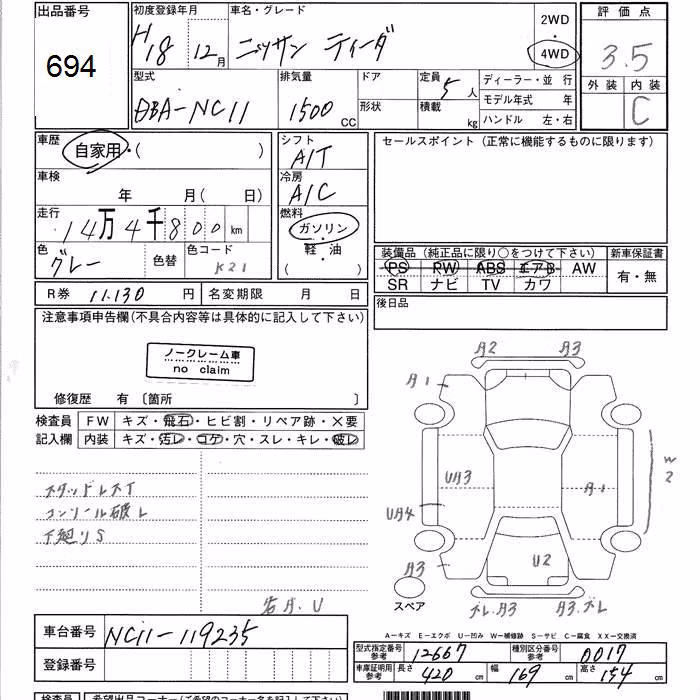 出品番号 初度登録年月 車名・グレード 2WD 評価点
694 H18 12月 ニッサン ティーダ 4WD 3.5
型式 排気量 ドア 定員 5人 ディーラー・並 行 外装 内装
DBA-NC11 1500 CC 形状 積載 kg モデル年式 年 C
ハンドル 左・右
車歴 シフト セールスポイント(正常に機能するものに限ります)
自家用・( ) A/T
車検 冷房
年 月(日) A/C
走行 燃料
14万4千800km ガソリン
色 色替 色コード 軽・油 装備品(純正品に限り○をつけて下さい) 新車保証書
グレー K21 ( ) PS PW ABS エアB AW 有・無
SR ナビ TV カワ
R券 11,130円 名変期限 月 日 後日品
注意事項申告欄(不具合内容等は具体的に記入して下さい)
ノークレーム車
no claim
修復歴 有〔箇所 〕
検査員 FW キズ・飛石・ヒビ割・リペア跡・×要
記入欄 内装 キズ・汚レ・コゲ・穴・スレ・キレ・破レ
スタッドレスT
コンソール破レ
下廻りS
A2 A3
A1
UA3 A1 W2
UA4
A3 U2
スペア
ズレ.A3 A3.ズレ
A-キズ E-エクボ U-凹み W-補修跡 S-サビ C-腐食 XX-交換済
車台番号 NC11-119235
型式指定番号 参考 12667 種別区分番号 参考 0017
登録番号 車庫証明用 参考 長さ 420cm 幅 169cm 高さ 154cm
検査員 希望出品コーナー(ご希望のコーナー名を記入して下さい)